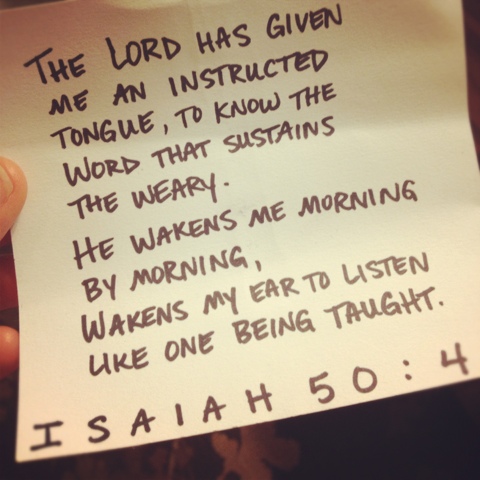 THE LORD HAS GIVEN
ME AN INSTRUCTED
TONGUE, TO KNOW THE
WORD THAT SUSTAINS
THE WEARY.
HE WAKENS ME MORNING
BY MORNING,
WAKENS MY EAR TO LISTEN
LIKE ONE BEING TAUGHT.
ISAIAH 50:4